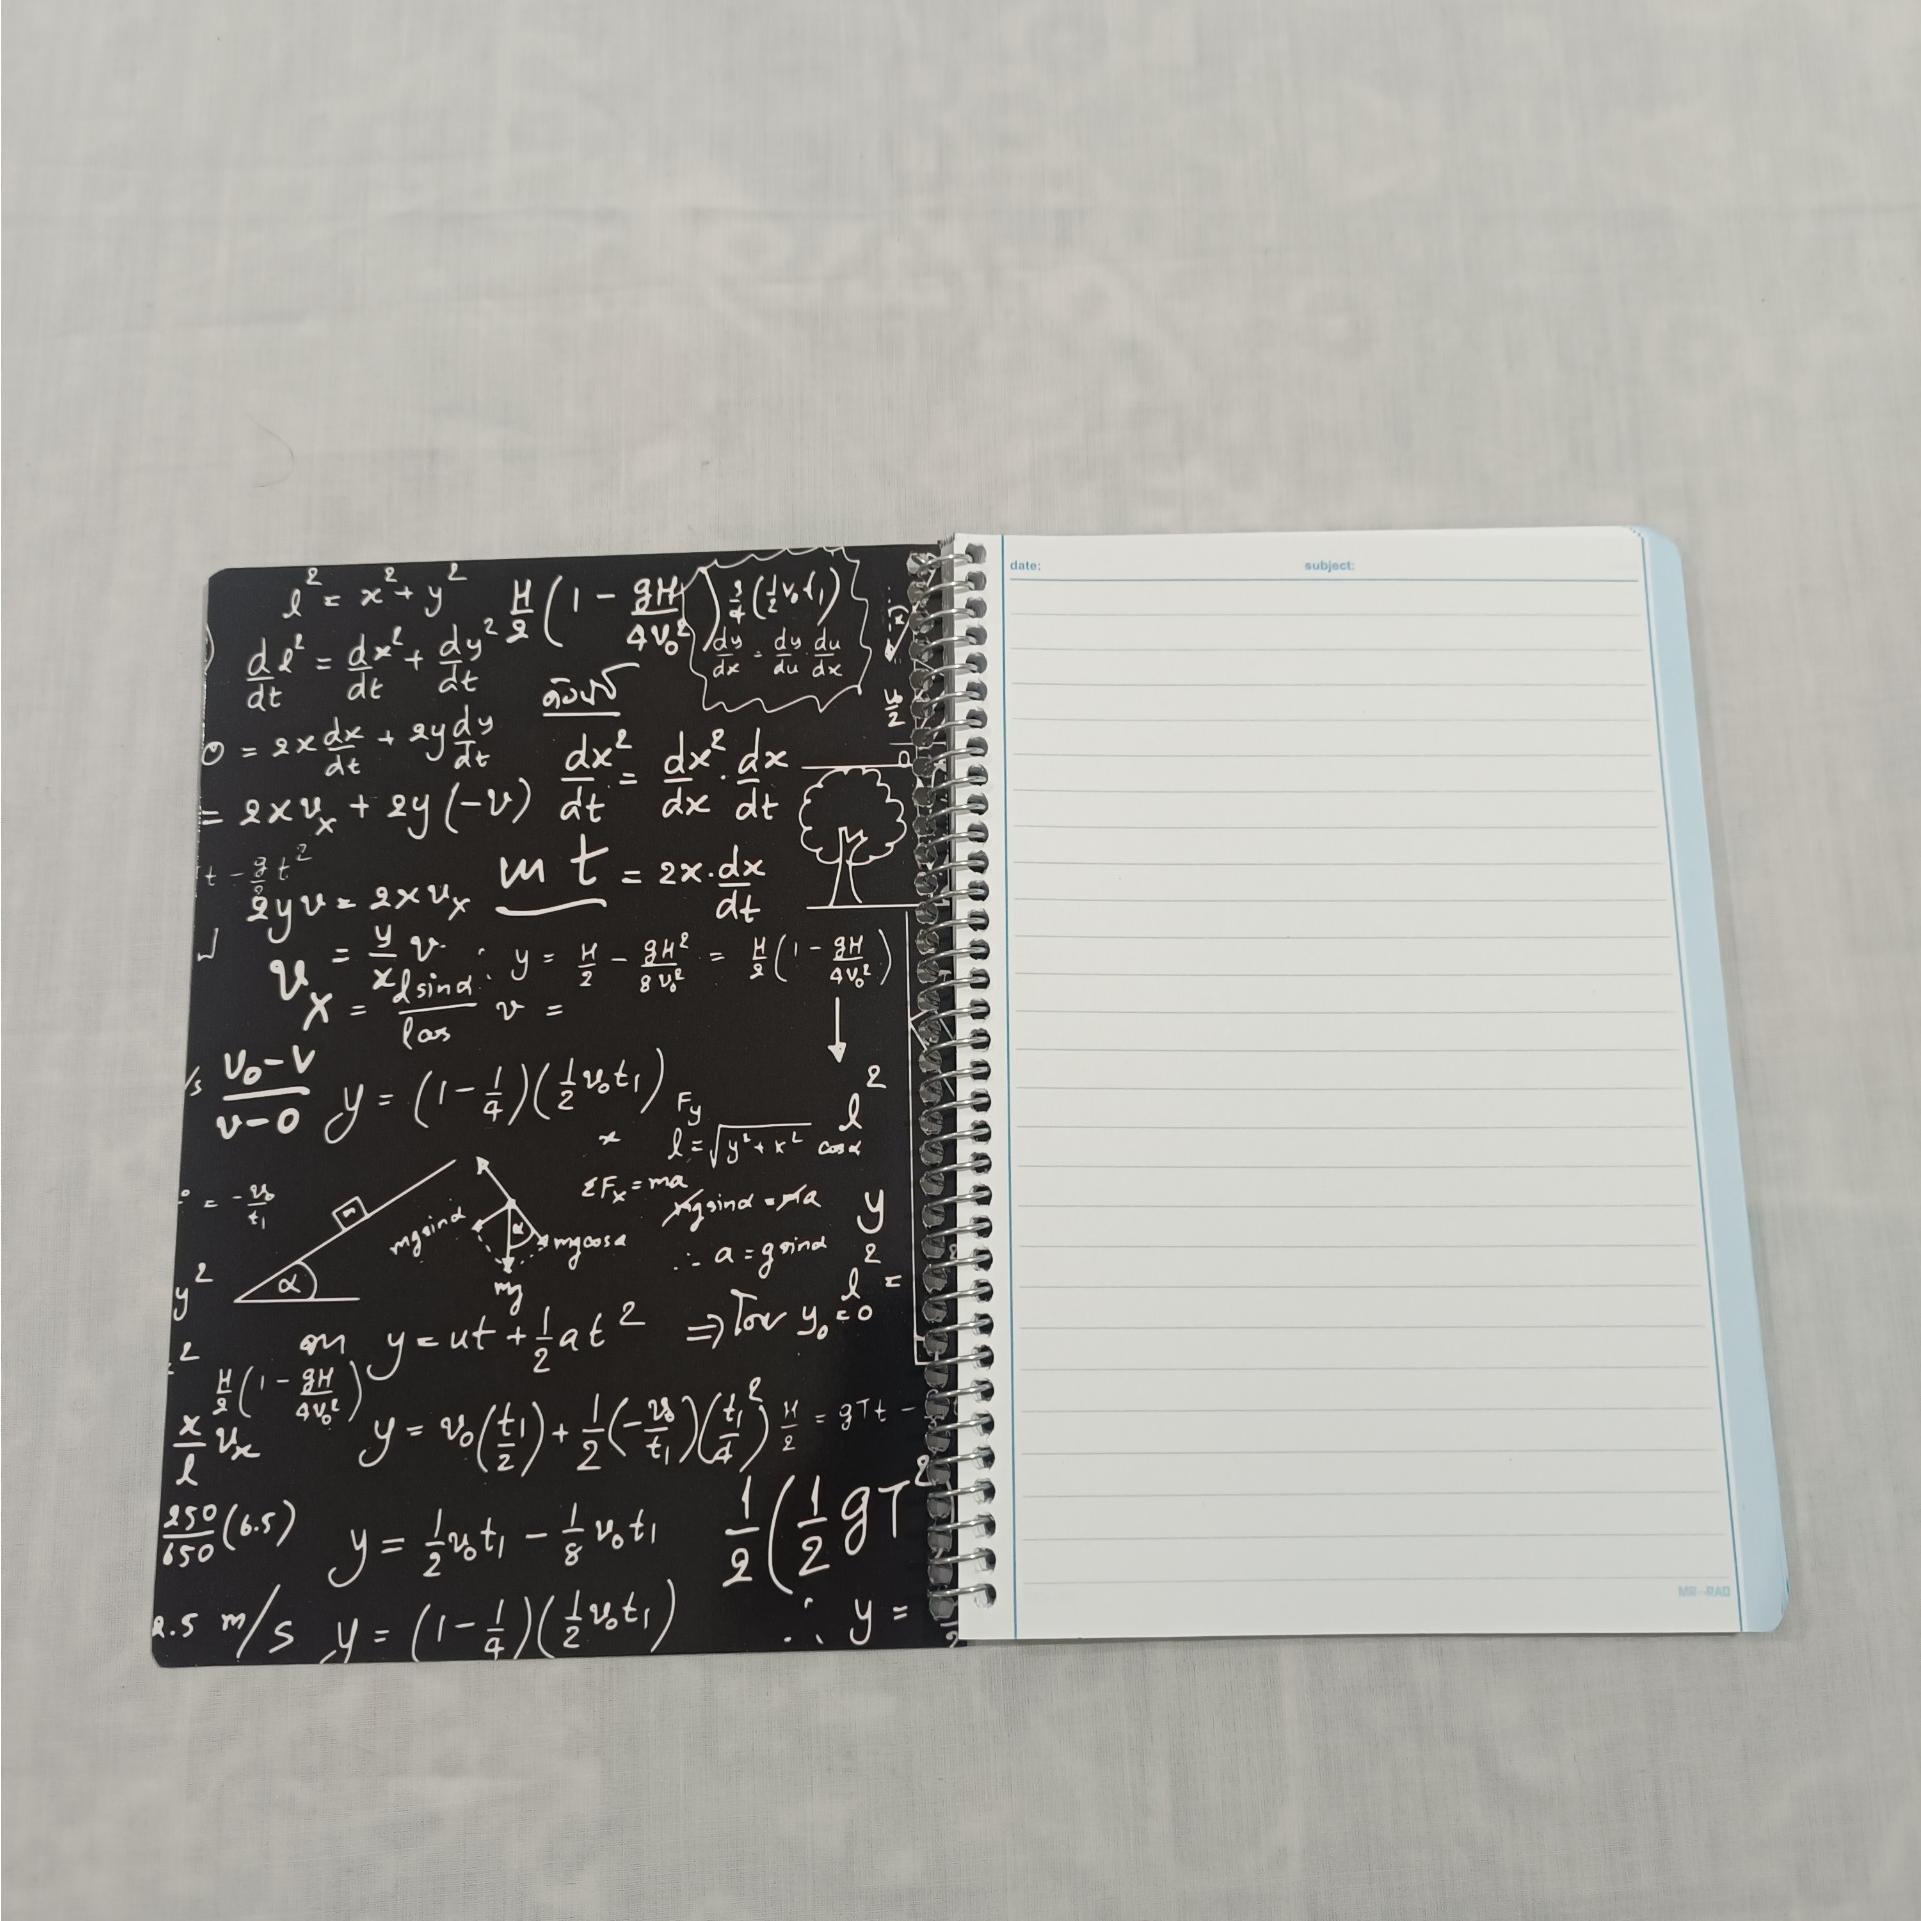 l² = x² + y²
H/2 (1 - gH/4v₀²) 3/4 (1/2 v₀t₁)
dy/dx = dy/du · du/dx
d/dt l² = dx²/dt + dy²/dt
v₀/2
0 = 2x dx/dt + 2y dy/dt
dx²/dt = dx²/dx · dx/dt
= 2xvₓ + 2y(-v)
t - g/2 t²
m t = 2x · dx/dt
2yv = 2xvₓ
vₓ = y/x v
∴ y = H/2 - gH²/8v₀² = H/2 (1 - gH/4v₀²)
= l sinα/l cos v =
/s v₀-v/v-0
y = (1 - 1/4)(1/2 v₀t₁)
l²
F_y
x
l = √y² + x² cosα
= -v₀/t₁
ΣFₓ = ma
mg sinα = ma
y²
mg sinα
α
mg cosα
mg
α
∴ a = g sinα
l² =
y²
y = ut + 1/2 at² ⇒ y₀ = 0
H/2 (1 - gH/4v₀²)
y = v₀(t₁/2) + 1/2(-v₀/t₁)(t₁²/4)
H/2 = gTt -
x/l vₓ
250/650 (6.5)
y = 1/2 v₀t₁ - 1/8 v₀t₁
1/2 (1/2 gT²
2.5 m/s
y = (1 - 1/4)(1/2 v₀t₁)
∴ y =
date: subject:
MR-RAD